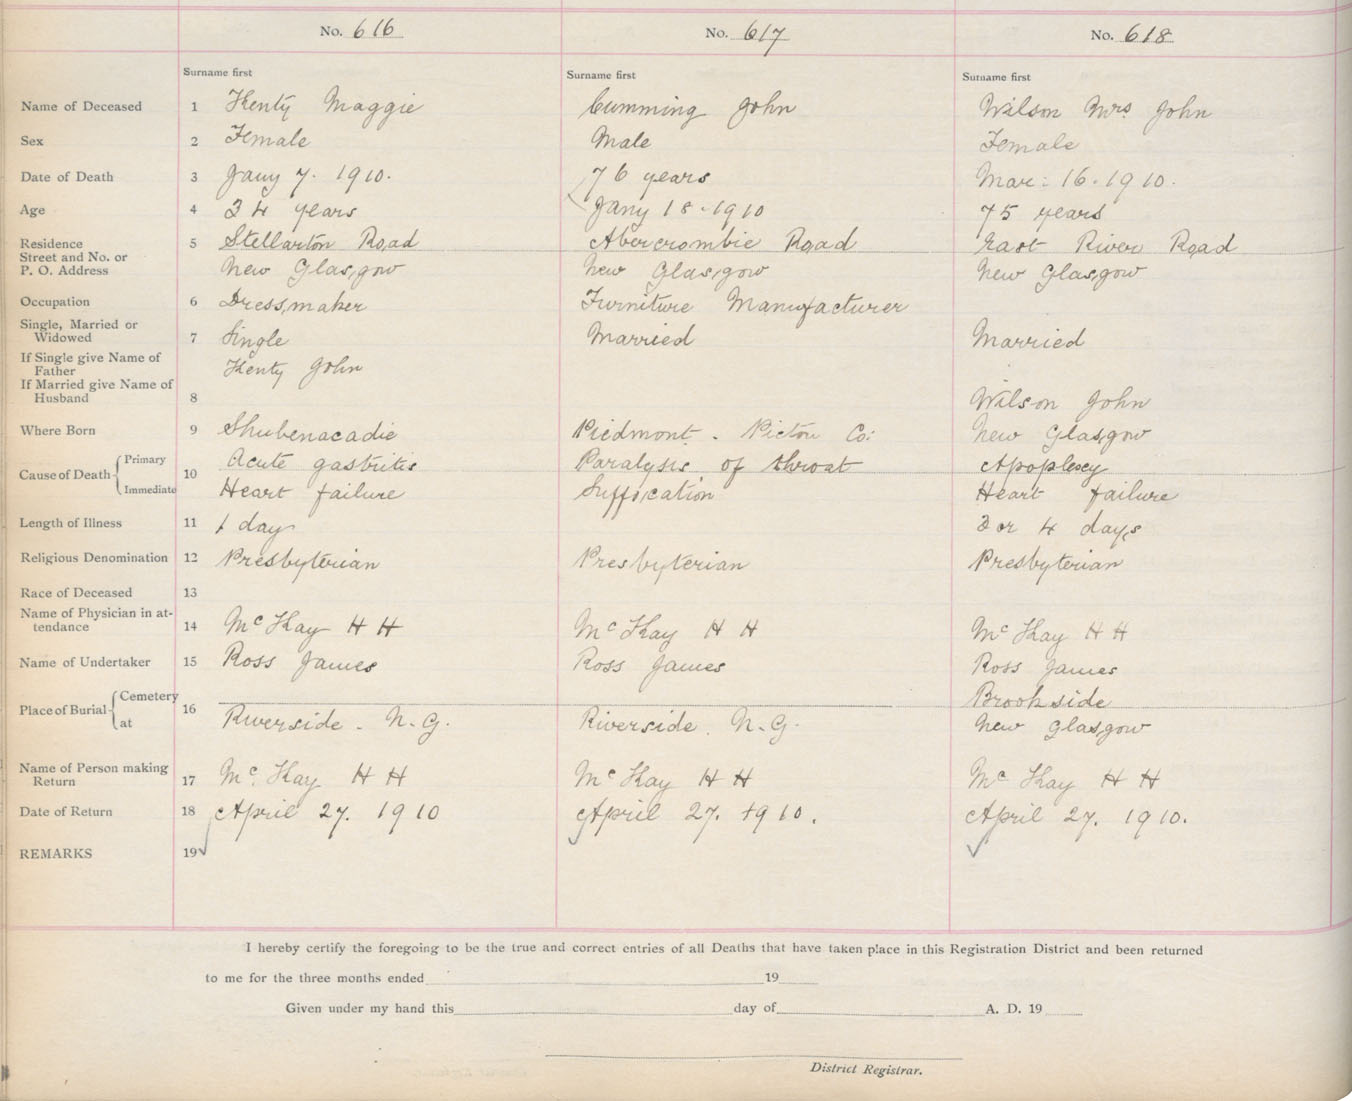 No. 616 No. 617 No. 618
Surname first Surname first Surname first
Name of Deceased 1 Kenty Maggie Cumming John Wilson Mrs. John
Sex 2 Female Male Female
Date of Death 3 Jany 7. 1910. 76 years Mar: 16. 1910.
Age 4 34 years Jany 18-1910 75 years
Residence 5 Stellarton Road Abercrombie Road East River Road
Street and No. or
P. O. Address New Glasgow New Glasgow New Glasgow
Occupation 6 Dressmaker Furniture Manufacturer
Single, Married or
Widowed 7 Single Married Married
If Single give Name of
Father Kenty John
If Married give Name of
Husband 8 Wilson John
Where Born 9 Shubenacadie Piedmont. Pictou Co: New Glasgow
Cause of Death Primary 10 Acute gastritis Paralysis of throat Apoplexy
Immediate Heart failure Suffication Heart failure
Length of Illness 11 1 day 3 or 4 days
Religious Denomination 12 Presbyterian Presbyterian Presbyterian
Race of Deceased 13
Name of Physician in at-
tendance 14 McKay H H McKay H H McKay H H
Name of Undertaker 15 Ross James Ross James Ross James
Place of Burial Cemetery 16 Brookside
at Riverside. N. G. Riverside. N. G. New Glasgow
Name of Person making
Return 17 Mc.Kay H H McKay H H McKay H H
Date of Return 18 April 27. 1910 April 27. 1910. April 27. 1910.
REMARKS 19
I hereby certify the foregoing to be the true and correct entries of all Deaths that have taken place in this Registration District and been returned
to me for the three months ended 19
Given under my hand this day of A. D. 19
District Registrar.